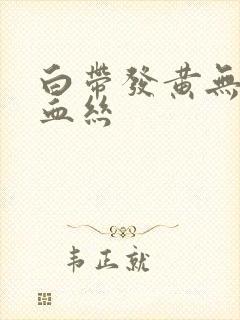 白帶發黃無
血絲
韦正就